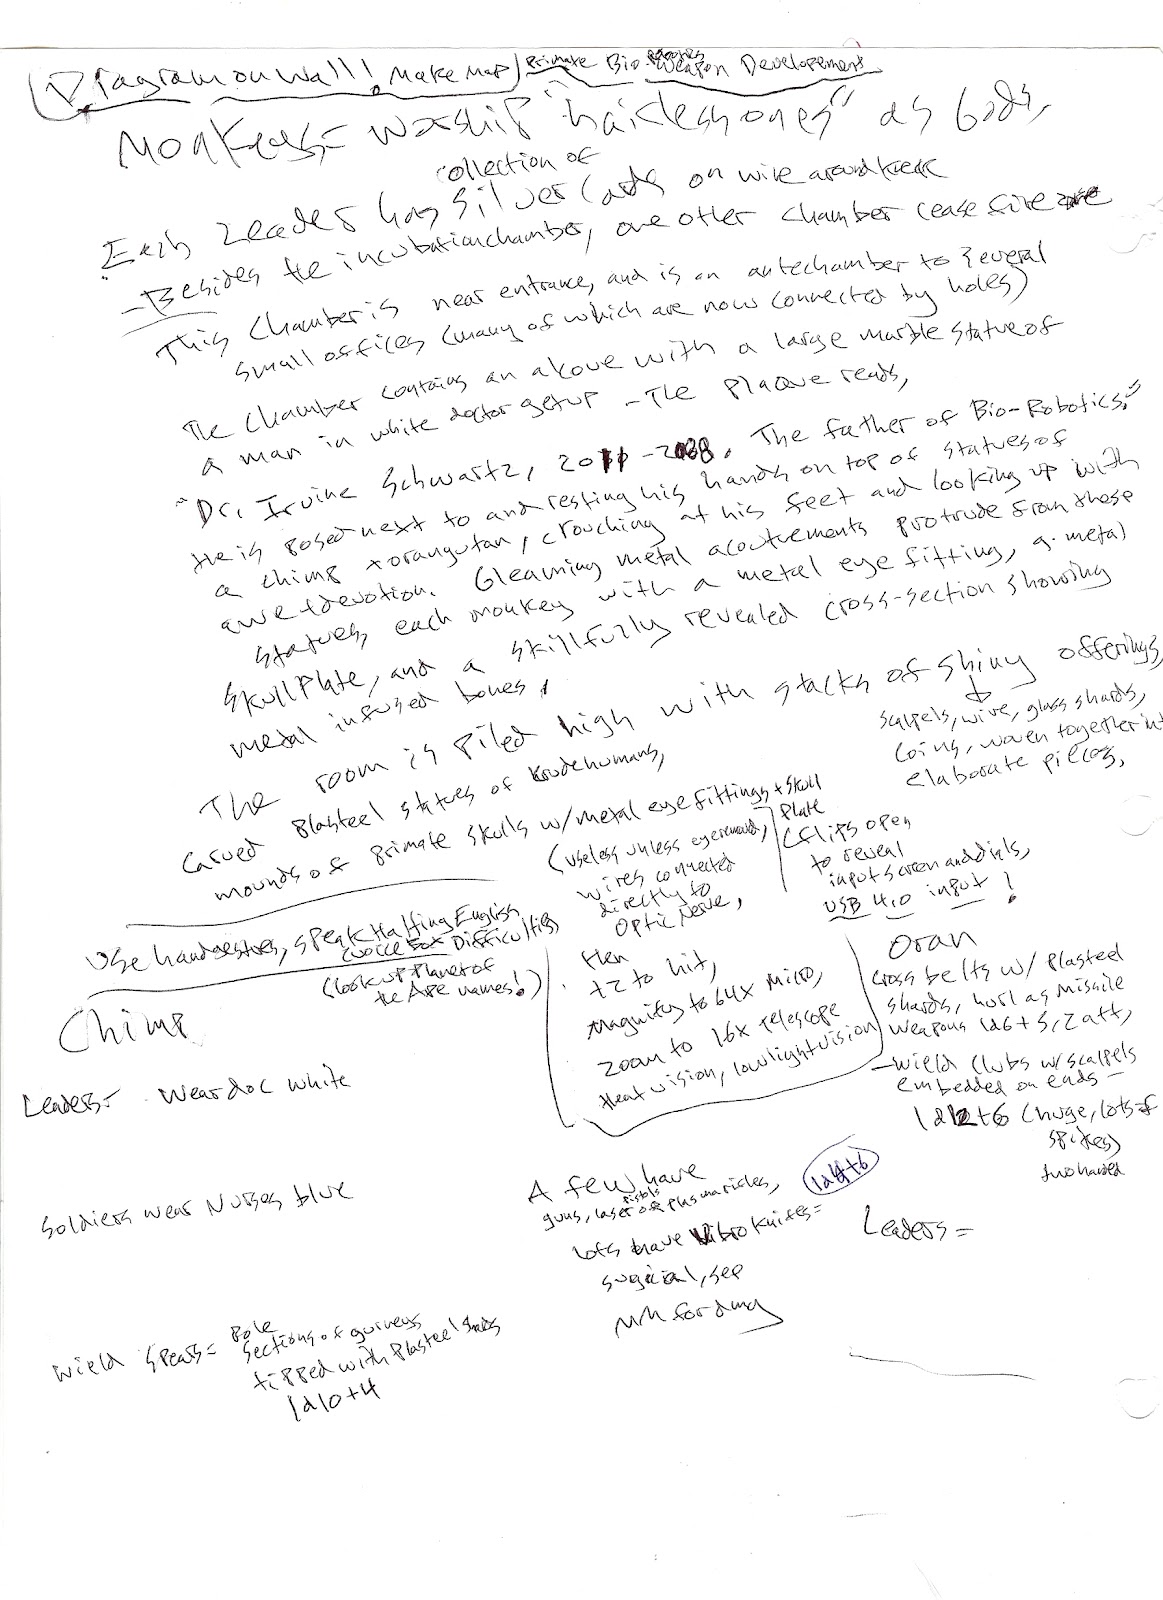 (Diagram on wall! Make Map) Primate Bio-Robotics Weapon Developement
Monkeys = worship "hairless ones" as Gods,
Each Leader has collection of Silver Cards on wire around neck
- Besides the incubation chamber, one other chamber cease fire
This chamber is near entrance, and is an antechamber to several
small offices (many of which are now connected by holes)
The chamber contains an alcove with a large marble statue of
a man in white doctor getup - The Plaque reads,
"Dr. Irvine Schwartz, 20 The father of Bio-Robotics."
He is posed next to and resting his hands on top of statues of
a chimp + orangutan, crouching at his feet and looking up with
awe + devotion. Gleaming metal acoutrements protrude from these
statues, each monkey with a metal eye fitting, a metal
skull Plate, and a skillfully revealed cross-section showing
metal infused bones.
The room is piled high with stacks of shiny offerings,
scalpels, wire, glass shards,
coins, woven together int
elaborate pieces,
Carved Plasteel statues of krude humans,
mounds of primate skulls w/ metal eye fittings + skull
Plate
(useless unless eye removed,
wires connected
directly to
Optic Nerve,
then
+2 to hit,
magnify to 64x Micro,
zoom to 16x telescope
Heat vision, lowlight vision
(flips open
to reveal
input screen and dials,
USB 4.0 input!
Use handgestures, speak Halting English
(voice box Difficulties
(look up Planet of
the Ape names!)
Chimp
Leaders = wear doc white
Soldiers wear Nurses blue
Wield spears = Pole
sections of gurneys
tipped with Plasteel shards
1d10+4
A few have
guns, laser pistols or plasma rifles,
lots have Vibro knives = 1d4+6
surgical, see
MM for dmg
Oran
Cross belts w/ Plasteel
shards, hurl as missile
weapons 1d6+5, 2 att,
- wield Clubs w/ scalpels
embedded on ends -
1d12+6 (huge, lots of
spikes)
two handed
Leaders =